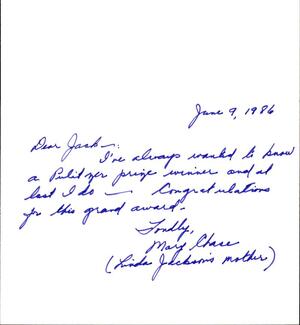 June 9, 1986
Dear Jack—
I've always wanted to know
a Pulitzer prize winner and at
last I do — Congratulations
for this grand award.
Fondly,
Mary Chase
(Linda Jackson's mother)